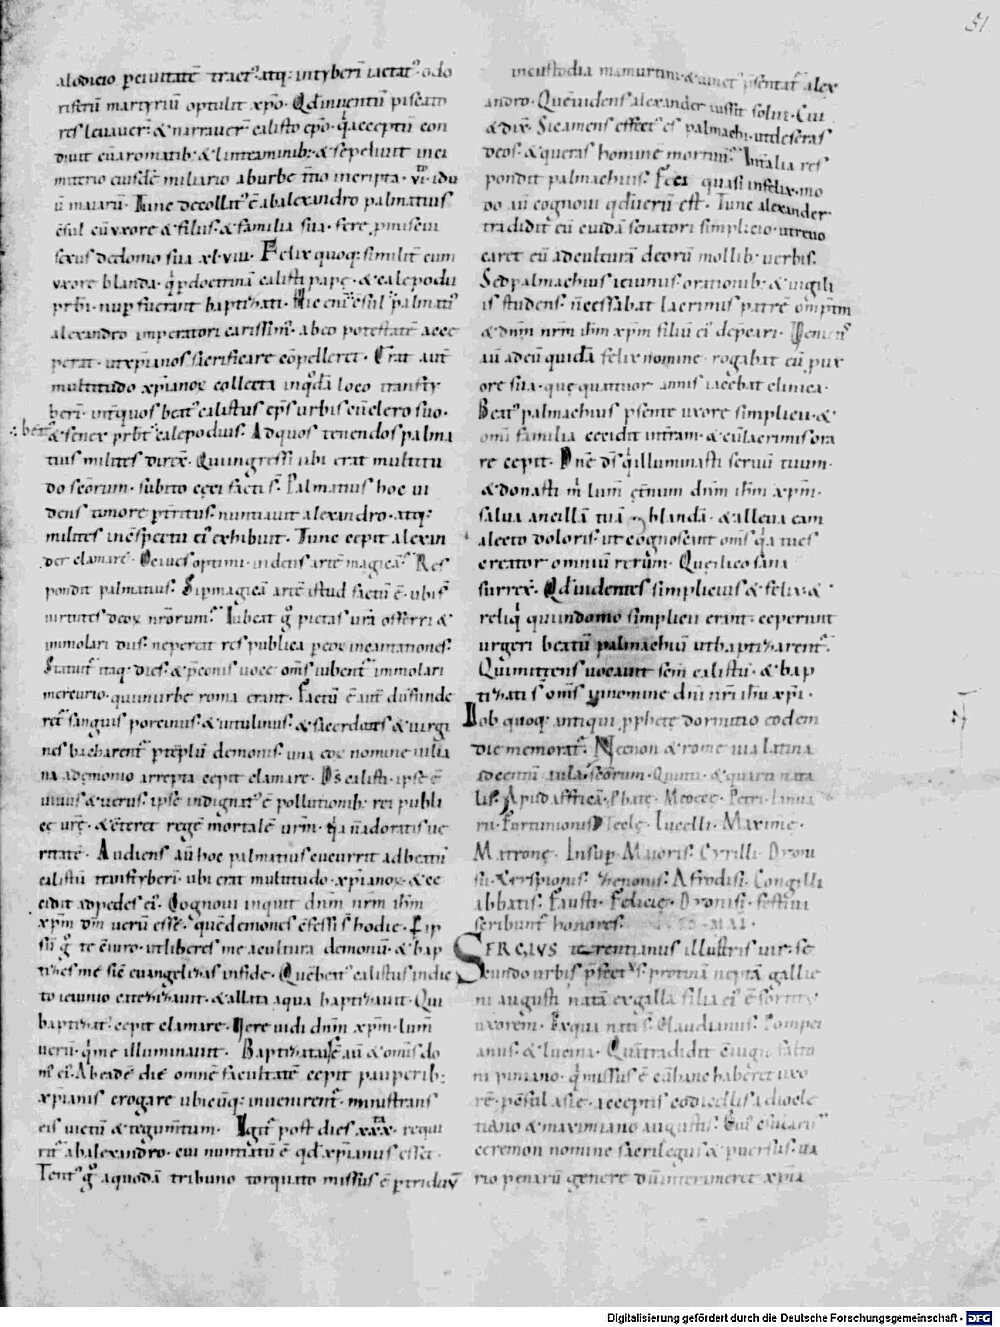 51
alodicio p ciuitatē tract᷒ atq; in tyberī iactat᷒ odo
riferū martyriū optulit xpo. Qd inuentū piscato
res leuauer̄ & narrauer̄ calisto epo. qͥ acceptū con
diuit cū aromatib; & linteaminib; & sepeliuit in ci
miterio eiusdē miliario ab urbe t͞tio in cripta. vi. idu
ū maiarū. Tunc decollat᷒ ē ab alexandro palmatius
c̄sul cū uxore & filiis & familia sua. fere p̄misciui
sexus de domo sua xl. viii. Felix quoq; similit̄ cum
uxore blanda. qͥ p doctrinā calisti papę & calepodii
prb̄i nup fuerant baptizati. Hic eni c̄sul palmati᷒
alexandro imperatori carissim᷒ ab eo potestatē acce
perat. ut xp̄ianos sacrificare cōpelleret. Erat aut̄
multitudo xp̄ianoꝝ collecta in qͦdā loco transty
berī. int̄ quos beat᷒ calistus ep̄s urbis cū clero suo.
∴ beat᷒
& senex prb̄t calepodius. Ad quos tenendos palma
tius milites direx̄. Qui ingressi ubi erat multitu
do sc̄orum. subito cęci facti s̄. Palmatius hoc ui
dens timore p̄territus. nuntiauit alexandro. atq;
milites in c̄spectu ei᷒ exhibuit. Tunc cepit alexan
der clamare. O ciues optimi uidens artē magicā. Res
pondit palmatius. Si p magicā artē istud factū ē. ubi s̄
uirtutes deoꝝ nr̄orum. Iubeat gͦ pietas ur̄a offerri &
immolari diis. ne pereat res publica p eoꝝ incantationes.
Statuit̄ itaq; dies. & p̄conis uoce om̄s iubent̄ immolari
mercurio. qui in urbe roma erant. Factū ē aut̄ dū funde
ret᷒ sanguis porcinus. & uitulinus. & sacerdotes & uirgi
nes bacharent̄ p tēplū demonis. una eoꝝ nomine iulia
na a demonio arrepta cepit clamare. Ds̄ calisti. ipse ē
uiuus & uerus. ipse indignat᷒ ē pollutionib; rei publi
cę urę. & c̄teret regē mortalē ur̄m. qͥa n̄ adoratis ue
ritatē. Audiens aū hoc palmatius cucurrit ad beatū
calistū transtyberī. ubi erat multitudo xp̄ianoꝝ. & ce
cidit ad pedes ei᷒. Cognoui inquit dn̄m nr̄m ih̄m
xp̄m dm̄ uerū esse. quē demones c̄fessi s̄ hodie. Eip
sū gͦ te c̄iuro. ut liberes me a cultura demonū. & bap
tizes me sic̄ euangelizas in fide. Quē beat᷒ calistus indic
to ieiunio catezizauit. & allata aqua baptizauit. Qui
baptizat᷒ cepit clamare. Vere uidi dn̄m xp̄m. lum̄
uerū. qͥ me illuminauit. Baptizata ē aū & omīs do
m᷒ ei᷒. Ab eadē die omnē facultatē cepit pauperib;
xp̄ianis erogare ubicūq; inuenirent̄. ministrans
eis uictū & tegum̄tum. Igit̄ post dies xxx. requi
rit᷒ ab alexandro. cui nuntiatū ē qd̄ xp̄ianus esset.
Tent᷒ gͦ a quodā tribuno torquato missus ē p triduū
in custodia mamurtini. & uinct᷒ p̄sentat᷒ alex
andro. Quē uidens alexander iussit solui. Cui
& dix̄. Sic amens effect᷒ es palmati. ut deseras
deos. & queras hominē mortuū. Et alia res
pondit palmatius. Feci quasi infelix. mo
do aū cognoui qd̄ uerū est. Tunc alexander
tradidit eū cuidā senatori simplicio. ut reuo
caret eū ad culturā deorū mollib; uerbis.
Sed palmachius ieiunus. orationib; & uigili
is studens. n̄ cessabat lacrimis patrē om̄iptm̄
& dn̄m nr̄m ih̄m xp̄m filiū ei᷒ dep̄cari. Veniens
aū ad eū quidā felix nomine. rogabat eū p ux
ore sua. quę quattuor annis iacebat clinica.
Beat᷒ palmachius p̄sente uxore simplicii &
omī familia cecidit in t̄ram. & cū lacrimis ora
re cepit. Dn̄e ds̄ qͥ illuminasti seruū tuum.
& donasti m̄ lum̄ ęt̄num dn̄m ih̄m xp̄m.
salua ancillā tuā blandā. & alleua eam
a lecto doloris. ut cognoscant om̄s qͥa tu es
creator omniū rerum. Quę ilico sana
surrex̄. Qd̄ uidentes simplicius & felix. &
reliqͥ qui in domo simplicii erant. ceperunt
urgeri beatū palmachiū ut baptizarent̄.
Qui mittens uocauit sc̄m calistū. & bap
tizati s̄ om̄s in nomine dn̄i nr̄i ih̄u xp̄i.
Iob quoq; antiqui pphetę dormitio eodem
die memorat̄. Necnon & rome uia latina
ad centū aula. sc̄orum. Quinti. & quarti nata
lis. Apud affricā. Petri. Ianua
rii. Fortunionis. Teclę. Lucelli. Maximę.
Matronę. Insup Maioris. Cyrilli. Dioni
sii. Crispionis. Zenonis. Afrodisi. Longilli
abbatis. Fausti. Felicię. Dionisi. festiui
scribunt̄ honores.
SERGIVS terrentianus illustris uir. se
cundo urbis p̄fect᷒ s. p̄tinā neptā gallie
ni augusti natā ex galla filia ei᷒ ē sortit᷒
uxorem. Ex qua nati s̄. Claudianus. Pompei
anus. & lucina. Quā tradidit c̄iugē falto
ni piniano. qͥ missus ē cū hanc haberet uxo
rē. p̄c̄sul asię. acceptis codicellis a diocle
tiano & maximiano augustis.
ceremon nomine sacrilegus & puersus. ua
rio penarū genere dū interimeret xp̄ia
Digitalisierung gefördert durch die Deutsche Forschungsgemeinschaft - DFG